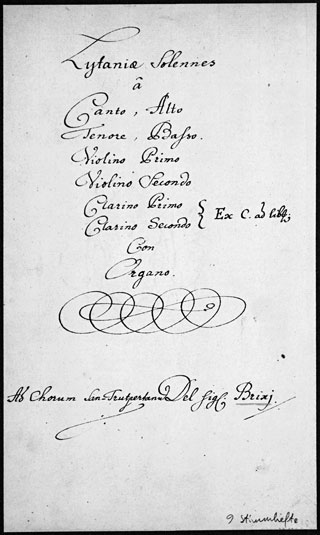 Lytaniæ Solennes
â
Canto, Alto
Tenore, Basso.
Violino Primo
Violino Secondo
Clarino Primo
Clarino Secondo } Ex C. ad lib:
Con
Organo.
Ab Chorum Del Sig: Brixj.
9 Stimmhefte